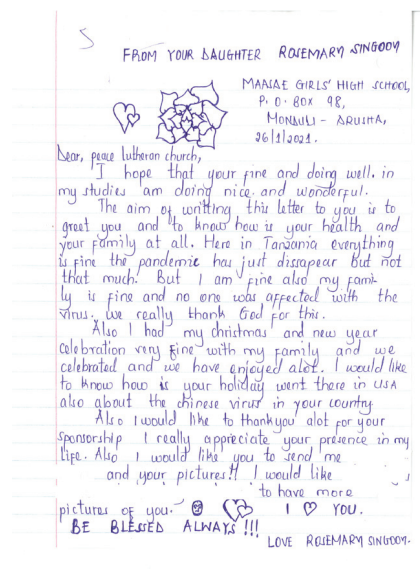 FROM YOUR DAUGHTER ROSEMARY SINGOOY
MAASAE GIRLS' HIGH SCHOOL,
P. O. BOX 98,
MONDULI - ARUSHA,
26/1/2021.
Dear, peace lutheran church,
I hope that your fine and doing well. in
my studies am doing nice and wonderful.
The aim of writting this letter to you is to
greet you and to know how is your health and
your family at all. Here in Tanzania everything
is fine the pandemic has just dissapear but not
that much. But I am fine also my fami-
ly is fine and no one was affected with the
virus. We really thank God for this.
Also I had my christmas and new year
celebration very fine with my family and we
celebrated and we have enjoyed alot. I would like
to know how is your holiday went there in USA
also about the chinese virus in your country
Also I would like to thankyou alot for your
sponsorship I really appreciate your presence in my
life. Also I would like you to send me
and your pictures!! I would like
to have more
pictures of you. I YOU.
BE BLESSED ALWAYS!!!
LOVE ROSEMARY SINGOOY.